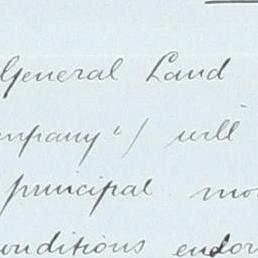 General Land
mpany") will
principal mo
onditions endor